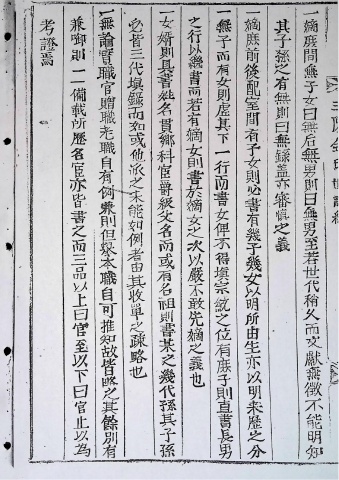 一嫡庶間無子女曰無后無男則曰無男至若世代稍久而文獻無徵不能明知
其子孫之有無則曰無錄盖亦審愼之義
一嫡庶前後配室間有子女則必書有幾子幾女以明所由生亦以明來歷之分
一無子而有女則虛其下一行南書女俾不得塡宗統之位有庶子則直書長男
之行以繼書而若有嫡女則書於嫡女之次以嚴不敢先嫡之義也
一女婿則具書姓名貫鄕科官爵級父名而或有名祖則書某之幾代孫其子孫
必皆三代塡錄而如或他派之未能如例者由其收單之疎略也
一無論實職官贈職老職自有例兼則但擧本職自可推知故皆略之其餘別有
兼啣則一一備載所歷名臣亦皆書之而三品以上曰官至以下曰官止以爲
考證焉